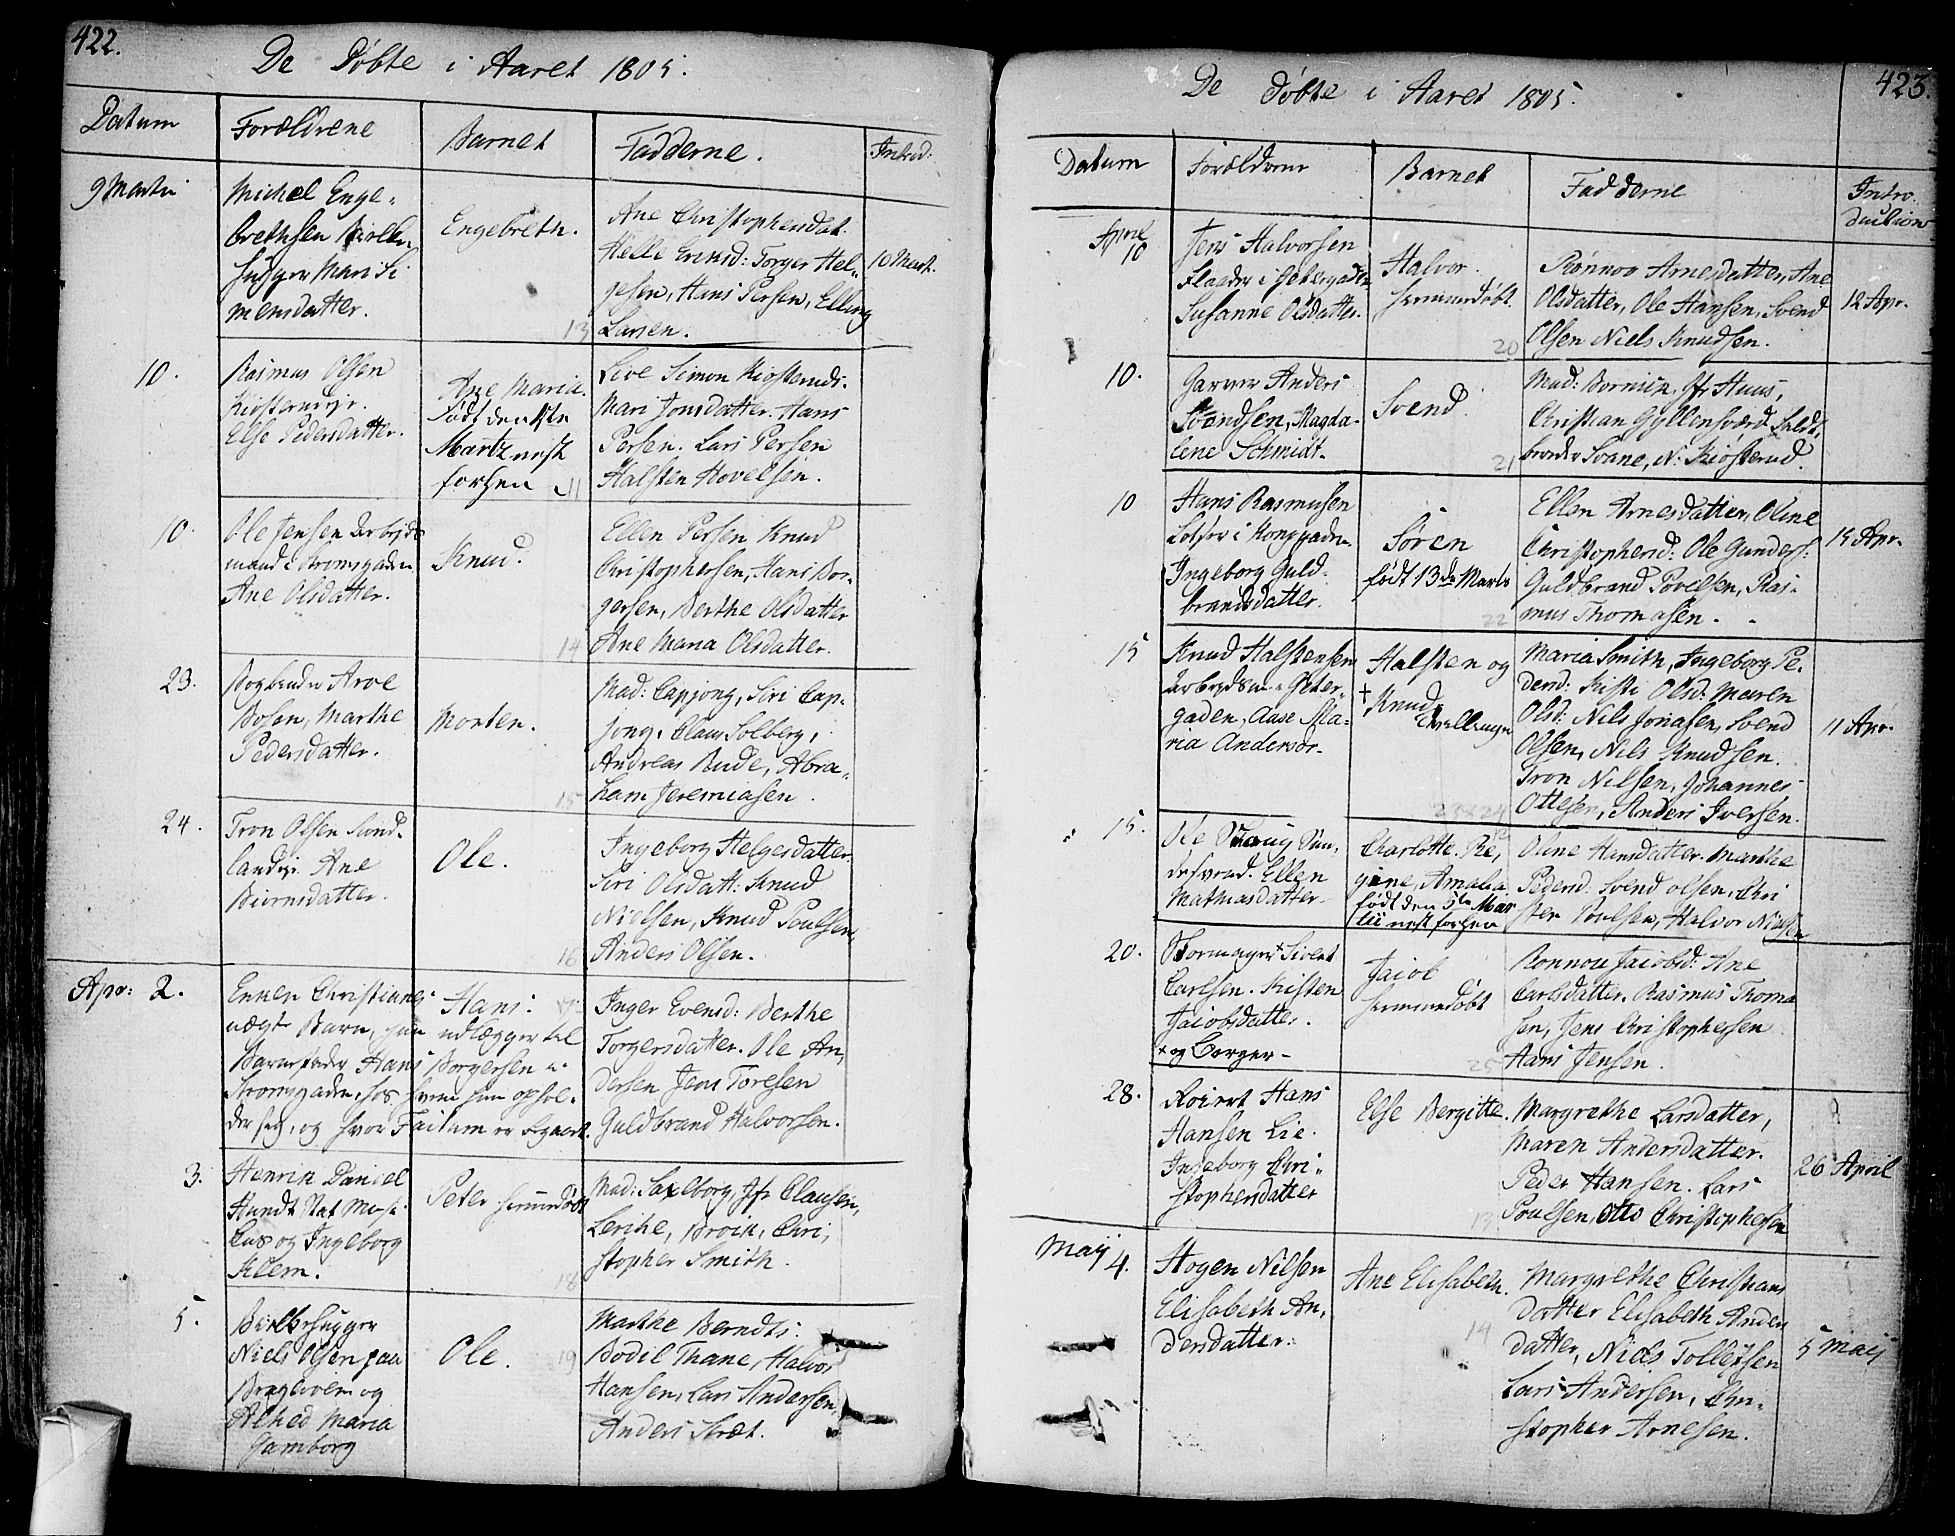 422.
De Døbte i Aaret 1805.
Datum Forældrene Barnet Fadderne. Introd:
9 Martii
Michel Enge-
brethsen
hugger Mari Si
mensdatter.
Engebreth.
Ane Christophersdat.
Helle Ericsd: Torger Hel-
gesen, Hans Persen, Elling
Larsen.
10 Mart.
13
10.
Rasmus Olsen
Kiøsterudejr.
Else Pedersdatter.
Ane Maria.
Født den
Martz nest
forhen
11
Live Simon Kiøsteruds.
Mari Jonsdatter. Hans
Persen. Lars Persen
Halsten Hovelsen.
10.
Ole Jensen Arbejds
mand i Strømsgaden
Ane Olsdatter.
Knud.
14
Ellen Persen Knud
Christophersen, Hans Bor-
gersen, Berthe Olsdatter
Ane Maria Olsdatter.
23.
Bogbinder Arve
Bosen, Marthe
Pedersdatter.
Morten.
15
Mad: Capjong, Siri Cap-
jong, Claus Solberg,
Andreas Rude, Abra-
ham Jeremiasen.
24.
Tron Olsen Sund-
landejr. Ane
Biørnsdatter.
Ole.
16
Ingeborg Helgesdatter
Siri Olsdatt: Knud
Nielsen, Knud Poulsen,
Anders Olsen.
Apr: 2.
Enken Christianes
uægt Barn, hun udlægger til
Barnefader Hans Borgersen i
Strømsgaden, hos hvem hun ophol-
der sig, og hvor Factum er
Hans.
Inger Evensd: Berthe
Torgersdatter. Ole An-
dersen Jens Toresen
Guldbrand Halvorsen.
3.
Henrik Daniel
Hundt Stat Musi-
cus og Ingeborg
Klem.
Peter hiemmedøbt
18
Mad: Saxeborg, Jfr Clausen,
Lerche, Broch, Chri-
stopher Smith.
5.
Birkehugger
Niels Olsen paa
Bragernes og
Alhed Maria
Gamborg
Ole.
19
Marthe Berndts.
Bodil Thane, Halvor
Hansen, Lars Andersen,
Anders Stræt.
423.
De døbte i Aaret 1805.
Datum Forældrene Barnet Fadderne Intro
ductionen
April
10
Jens Halvorsen
Flaader i Getergaden
Susanne Olsdatter.
Halvor.
hiemmedøbt.
20
Rønnov Arnesdatter, Ane
Olsdatter, Ole Hansen, Svend
Olsen Niels Knudsen.
12 Apr.
10.
Garver Anders
Svendsen, Magda-
lene Schmidt.
Svend.
21
Mad: Bornich, Jfr Huus,
Christian Gyllensværd
Svane, N: Kiøsterud.
10
Hans Rasmusen
Lotser i Konggaden.
Ingeborg Guld-
brandsdatter.
Søren
født 13de Martz
22
Ellen Arnesdatter, Oline
Christophersd: Ole Gunders:
Guldbrand Povelsen, Ras-
mus Thomasen.
15 Apr.
15
Knud Halstensen
Arbejdsm. i Geter-
gaden, Aase Ma-
ria Andersdr.
Halsten og
+
Knud
tvillinger
23 & 24
Maria Smith, Ingeborg Pe-
dersd: Kisti Olsd: Maren
Olsd: Nils Jonasen, Svend
Olsen, Nils Knudsen.
Tron Nilsen, Johannes
Ottesen, Anders Iversen.
11 Apr.
15.
Ole
Ellen
Mathiasdatter
Charlotte Re-
gine, Amalia
født den 5te Mar
tii nest forhen
12
Oline Hansdatter. Marthe
Pedersd: Svend Olsen, Chri
sten Poulsen, Halvor Nielsen
20.
Formager + Sivert
Carlsen. Kisten
Jacobsdatter.
+ og Borger
Jacob
hiemmedøbt
25
Ronnou Jacobsd: Ane
Carlsdatter. Rasmus Thoma
sen, Jens Christophersen
Hans Jensen.
28.
Roiert Hans
Hansen Lie.
Ingeborg Chri-
stophersdatter
Else Bergitte.
13
Margrethe Larsdatter,
Maren Andersdatter.
Peder Hansen. Lars
Poulsen, Otto Christophersen
26 April
Maij
4.
Hogen Nilsen
Elisabeth An-
dersdatter.
Ane Elisabeth.
14
Margrethe Christians
datter Elisabeth Anders
datter, Niels Tollefsen
Lars Andersen, Chri-
stopher Arnesen.
5 Maij